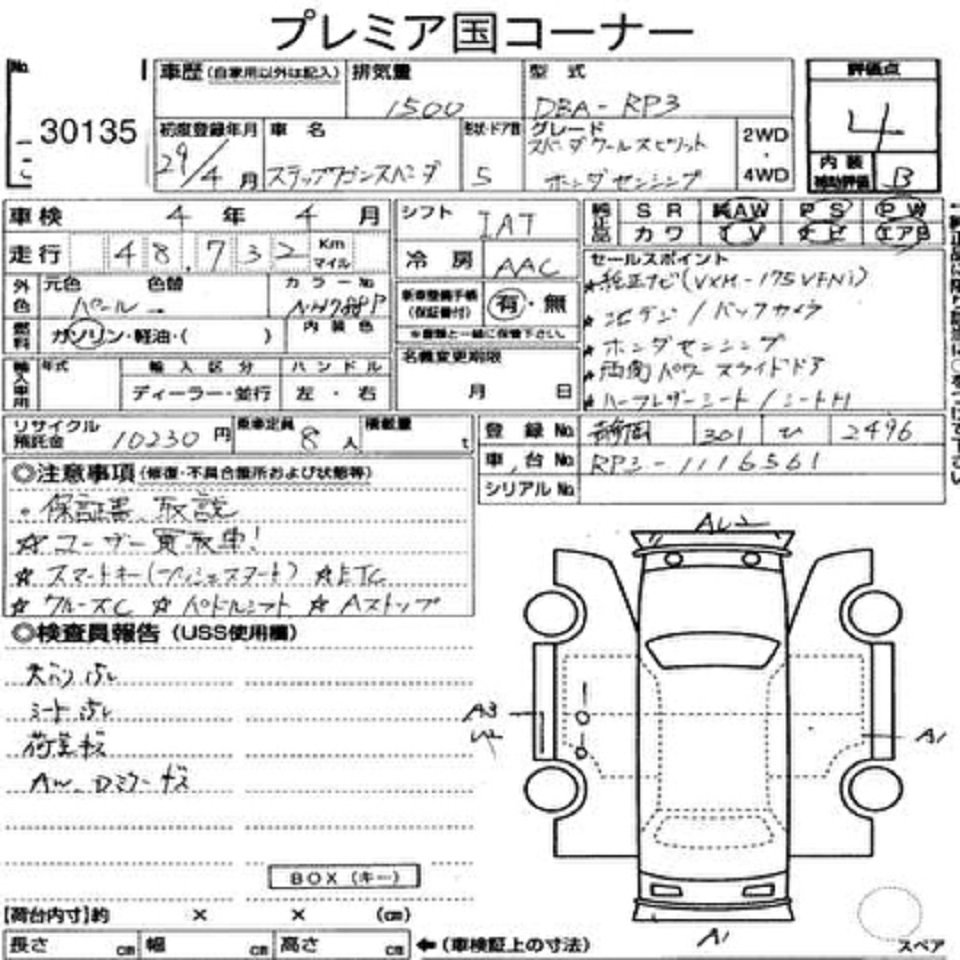 プレミア国コーナー
No.
30135
車歴 (自家用以外は記入)
排気量
1500
型式
DBA-RP3
評価点
4
初度登録年月
29/4月
車名
ステップワゴンスパーダ
形状・ドア数
5
グレード
スパーダクールスピリット
ホンダセンシング
2WD
・
4WD
内装
補助評価
B
車検 4年 4月
シフト
IAT
純正品
SR 純AW PS PW
カワ TV ナビ エアB
走行 48,732 Km マイル
冷房
AAC
セールスポイント
★純正ナビ(VXM-175VFNi)
★地デジ/バックカメラ
★ホンダセンシング
★両側パワースライドドア
★ハーフレザーシート/シートH
外色
元色
色替
パール
カラーNo
NH788P
新車整備手帳
(保証書付)
有・無
※書類と一緒に保管下さい。
燃料
ガソリン・軽油・( )
内装色
名義変更期限
月 日
輸入車用
年式
輸入区分
ハンドル
ディーラー・並行
左・右
リサイクル
預託金
10230円
乗車定員
8人
積載量
t
登録No
静岡 301 ひ 2496
車台No
RP3-1116561
シリアルNo
◎注意事項 (修復・不具合箇所および状態等)
・保証書、取説
☆ユーザー買取車!
☆スマートキー(プッシュスタート) ☆ETC
☆クルーズC ☆パドルシフト ☆Aストップ
◎検査員報告 (USS使用欄)
シート汚レ
荷室キズ
AW、Dミラーキズ
AU2
A3
U2
A1
A1
BOX (キー)
【荷台内寸】約 × × (cm)
長さ cm 幅 cm 高さ cm
←(車検証上の寸法)
スペア